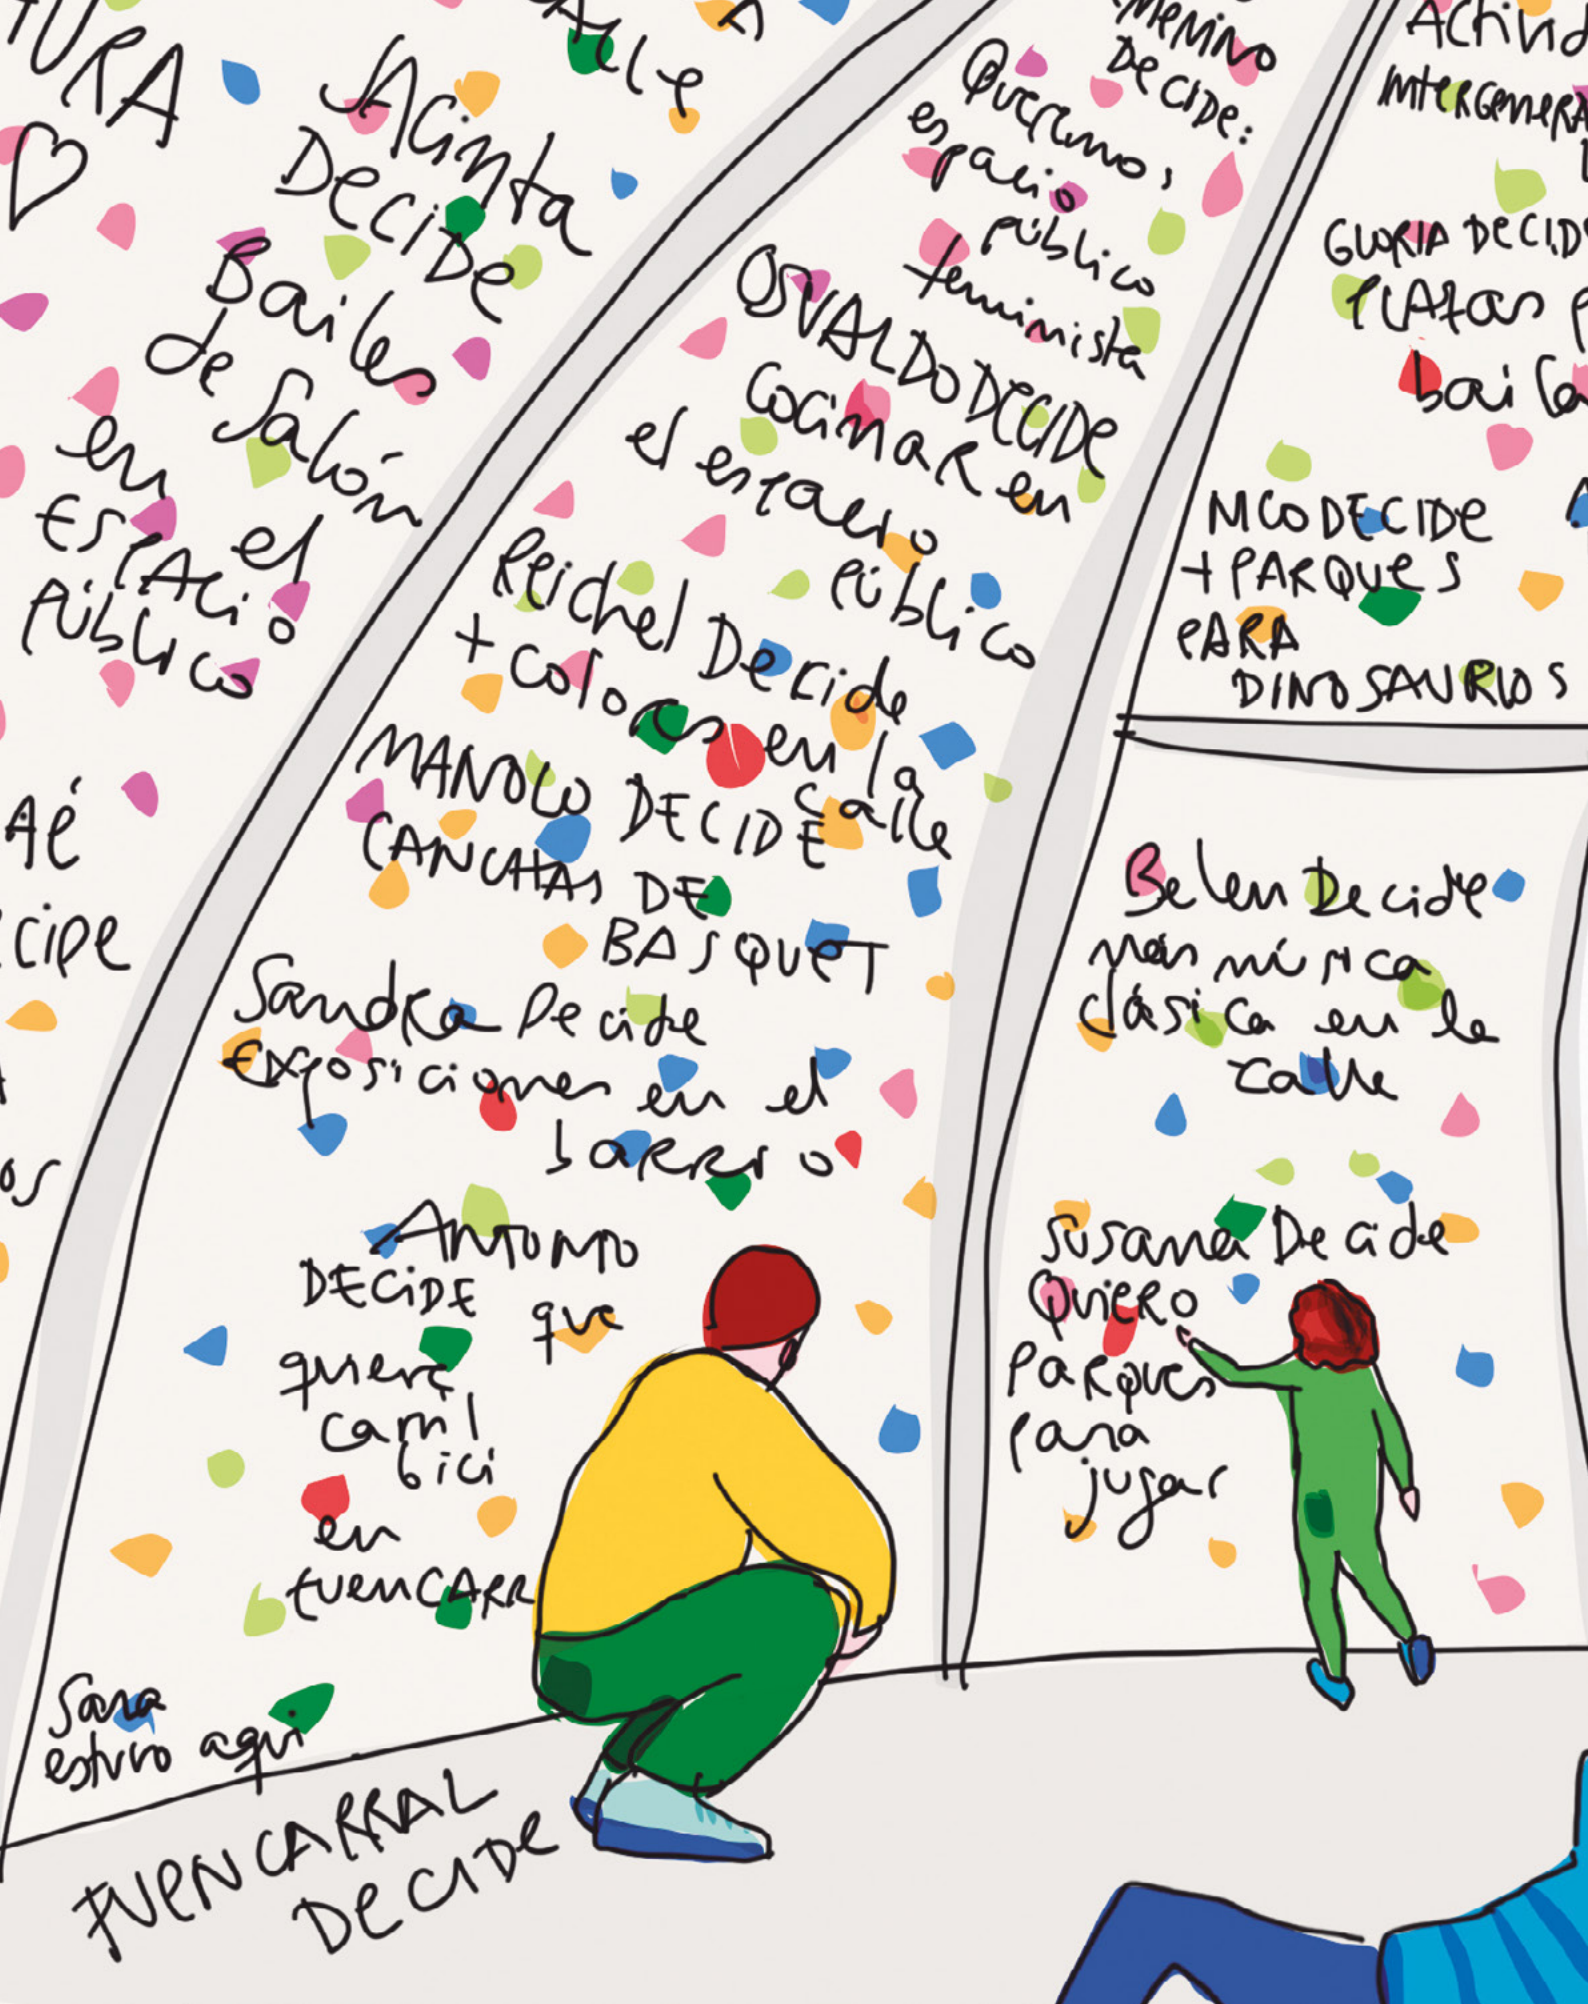 TURA
Jacinta
Decide
Bailes
de Salón
en el
ESPACIO
PÚBLICO
AÉ
CIDE
os
alle
femenino
Decide:
Queremos
espacio
público
feminista
OSVALDO DECIDE
Cocinar en
el espacio
público
Reichel Decide
+ colores en la
calle
MANOLO DECIDE
CANCHAS DE
BASQUET
Sandra Decide
Exposiciones en el
barrio
Antonio
DECIDE que
quiere
carril
bici
en
fuenCARR
Sara
estuvo aquí
FUENCARRAL
DECIDE
Activid
INTERGENERA
GLORIA DECID
PLAZAS P
baila
NICO DECIDE
+ PARQUES
PARA
DINOSAURIOS
Belen Decide
más música
clásica en la
calle
Susana Decide
Quiero
Parques
para
jugar